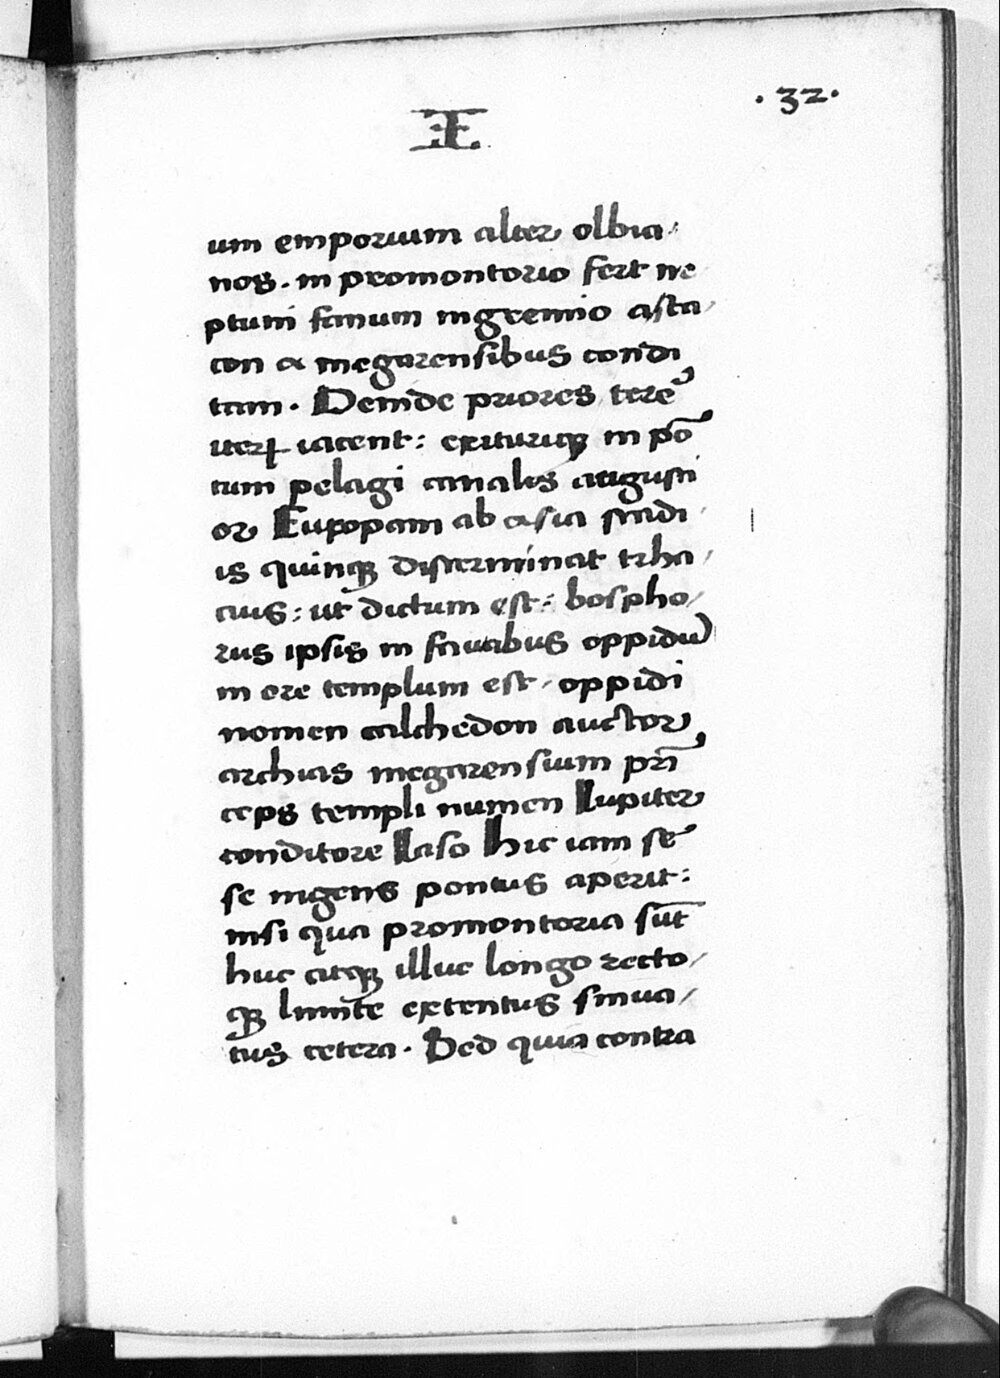 · 32 ·
um emporium alter olbia
nos · in promontorio fert ne
ptuni fanum in gremio asta
con a megarensibus condi
tam · Deinde priores terẽ
iterꝝ iacent : exiturusqꝫ in põ
tum pelagi canales angusti
or Europam ab asia stadi
is quinqꝫ disterminat trha
cius : ut dictum est : bospho
rus ipsis in faucibus oppidũ
in ore templum est oppidi
nomen calchedon auctor
archias megarensium prĩ
ceps templi numen Iupiter
conditore Iaso Hic iam se
se ingens pontus aperit :
nisi qua promontoria sũt
huc atqꝫ illuc longo recto
qꝫ limite extentus sinua
tus cetera · Sed quia contra